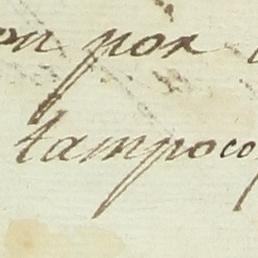 on por
tampoco